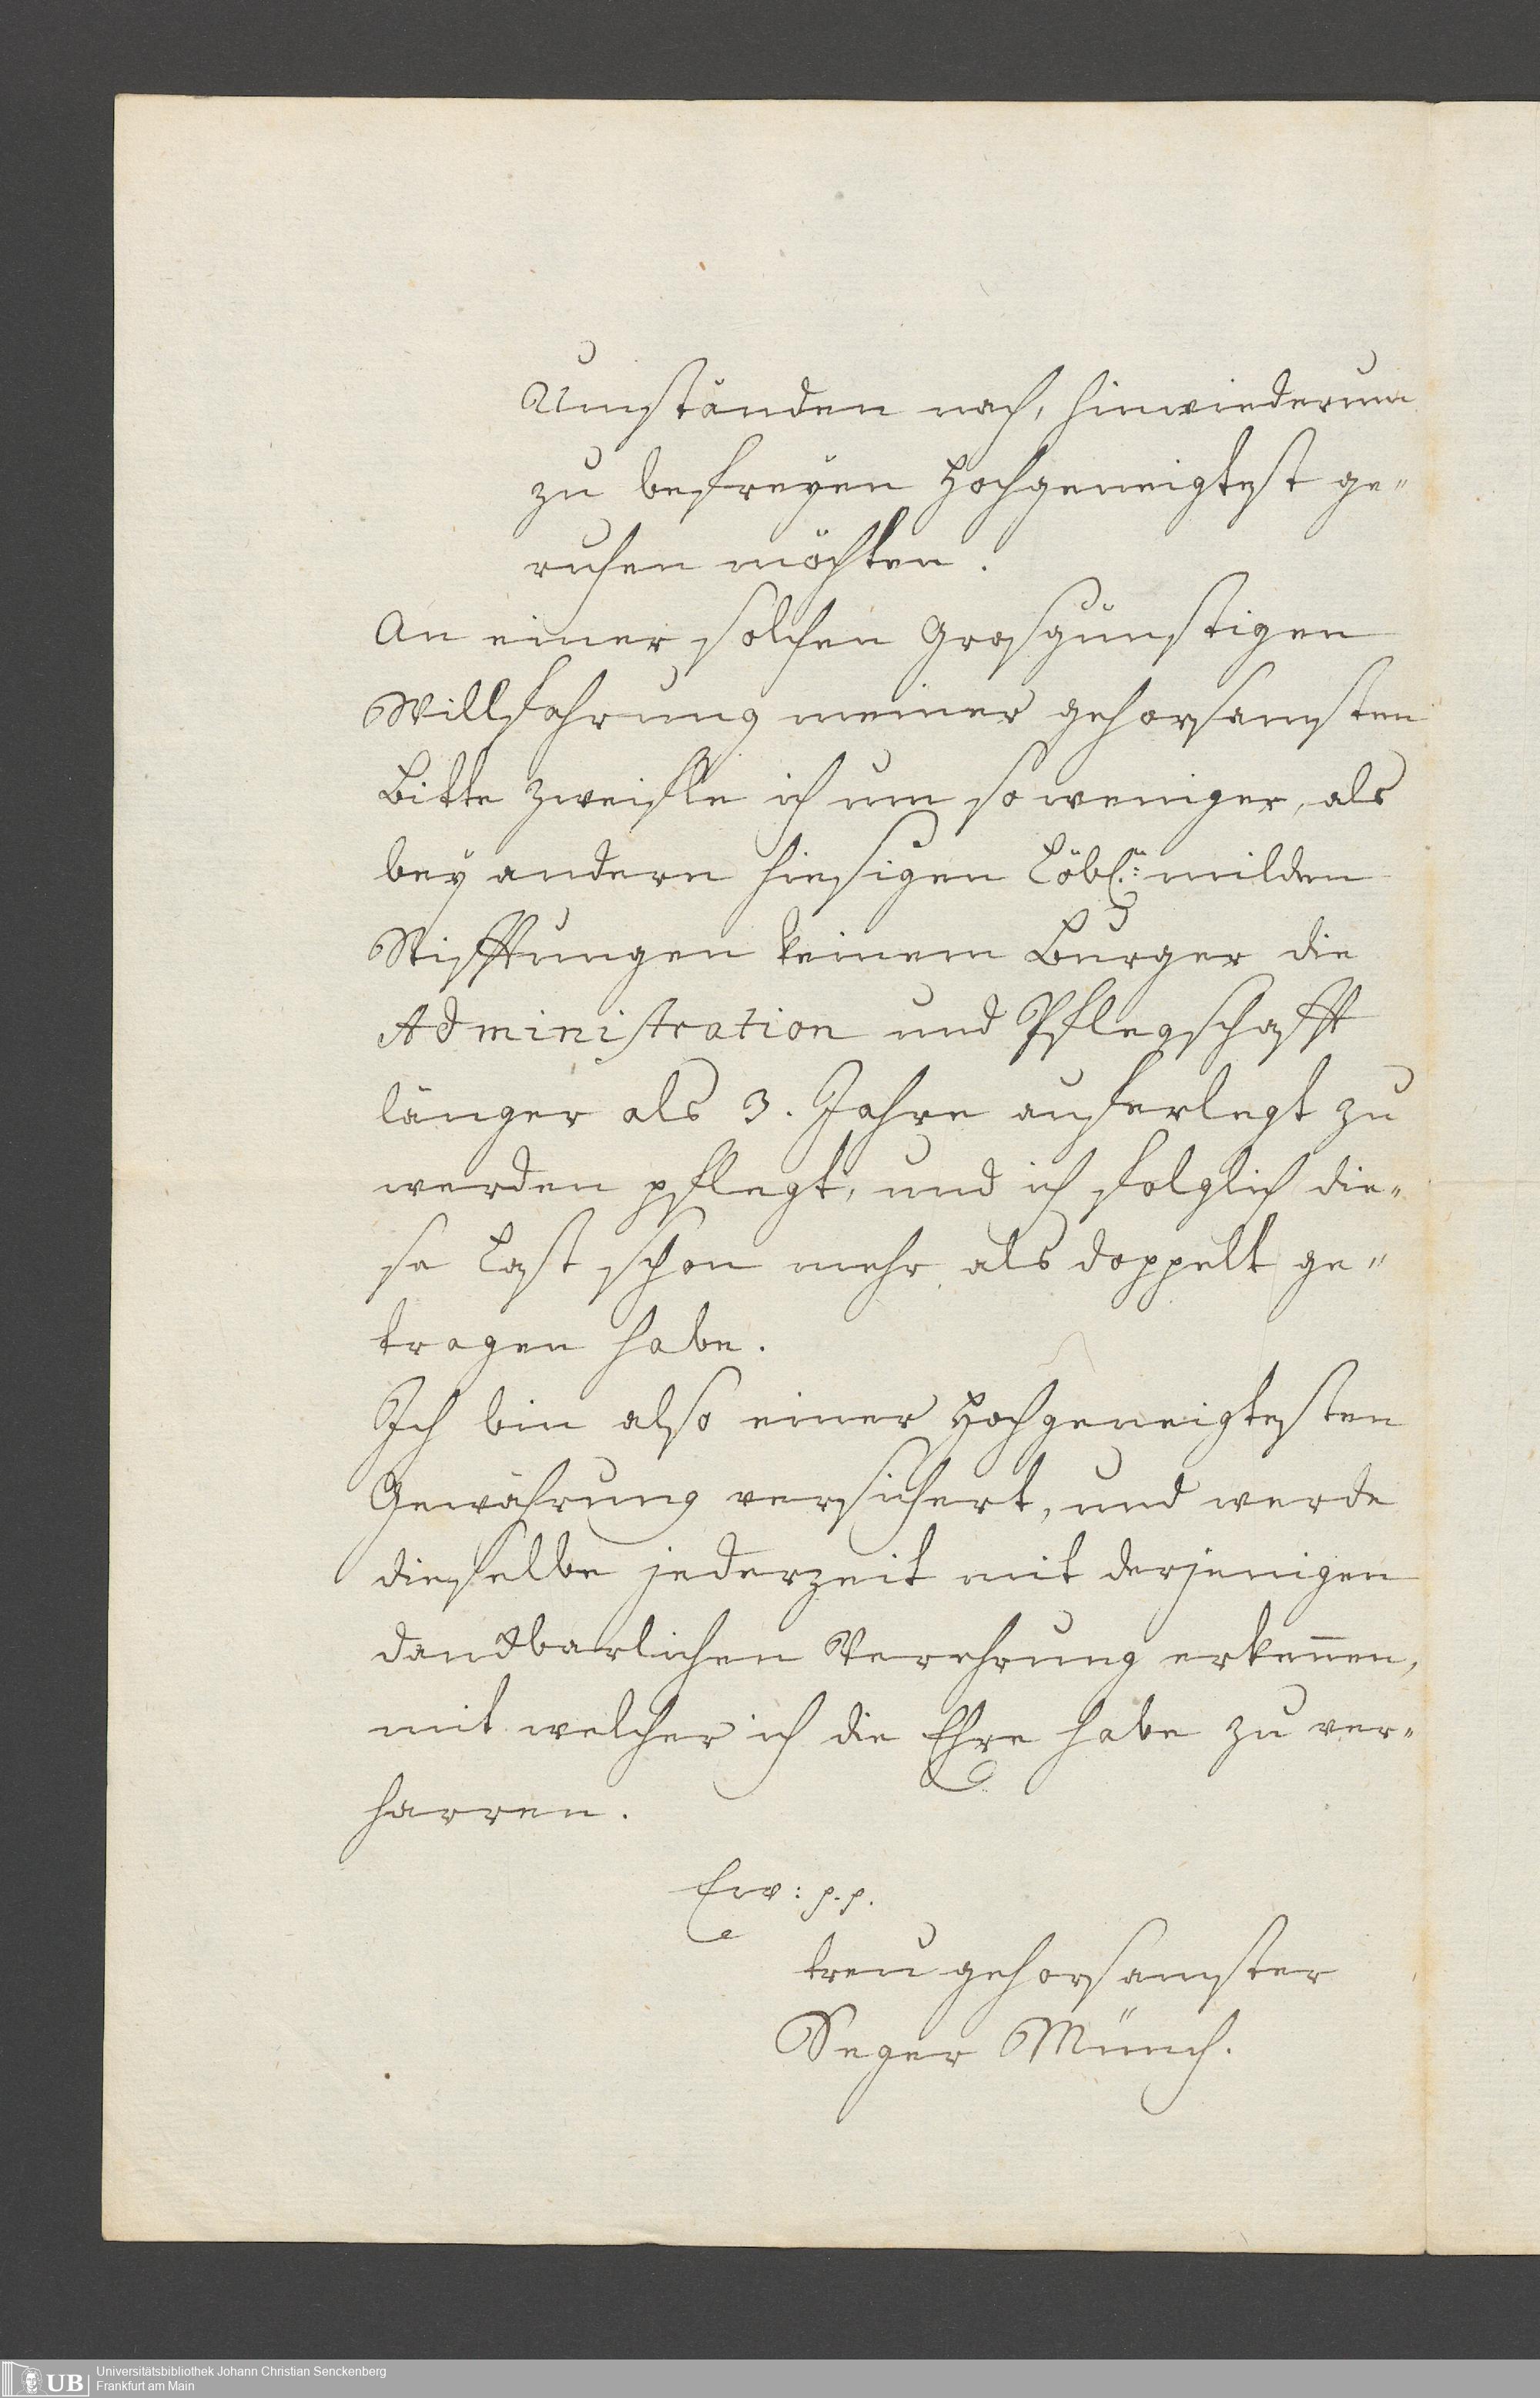 Umständen nach, hinwiederum
zu befreyen Hochgeneigtest ge-
ruhen möchten.
An einer solchen Grosgünstigen
Willfahrung meiner gehorsamsten
Bitte zweifle ich um so weniger, als
bey andern hiesigen Löbl.: milden
Stifftungen keinem Burger die
Administration und Pflegschafft
länger als 3. Jahre auferlegt zu
werden pflegt, und ich folglich die-
se Last schon mehr als doppelt ge-
tragen habe.
Ich bin also einer Hochgeneigtesten
Gewährung versichert, und werde
dieselbe jederzeit mit derjenigen
danckbarlichen Verehrung erkennen,
mit welcher ich die Ehre habe zu ver-
harren.
Ew: p.p.
treu gehorsamster
Seger Münch.
UB Universitätsbibliothek Johann Christian Senckenberg
Frankfurt am Main